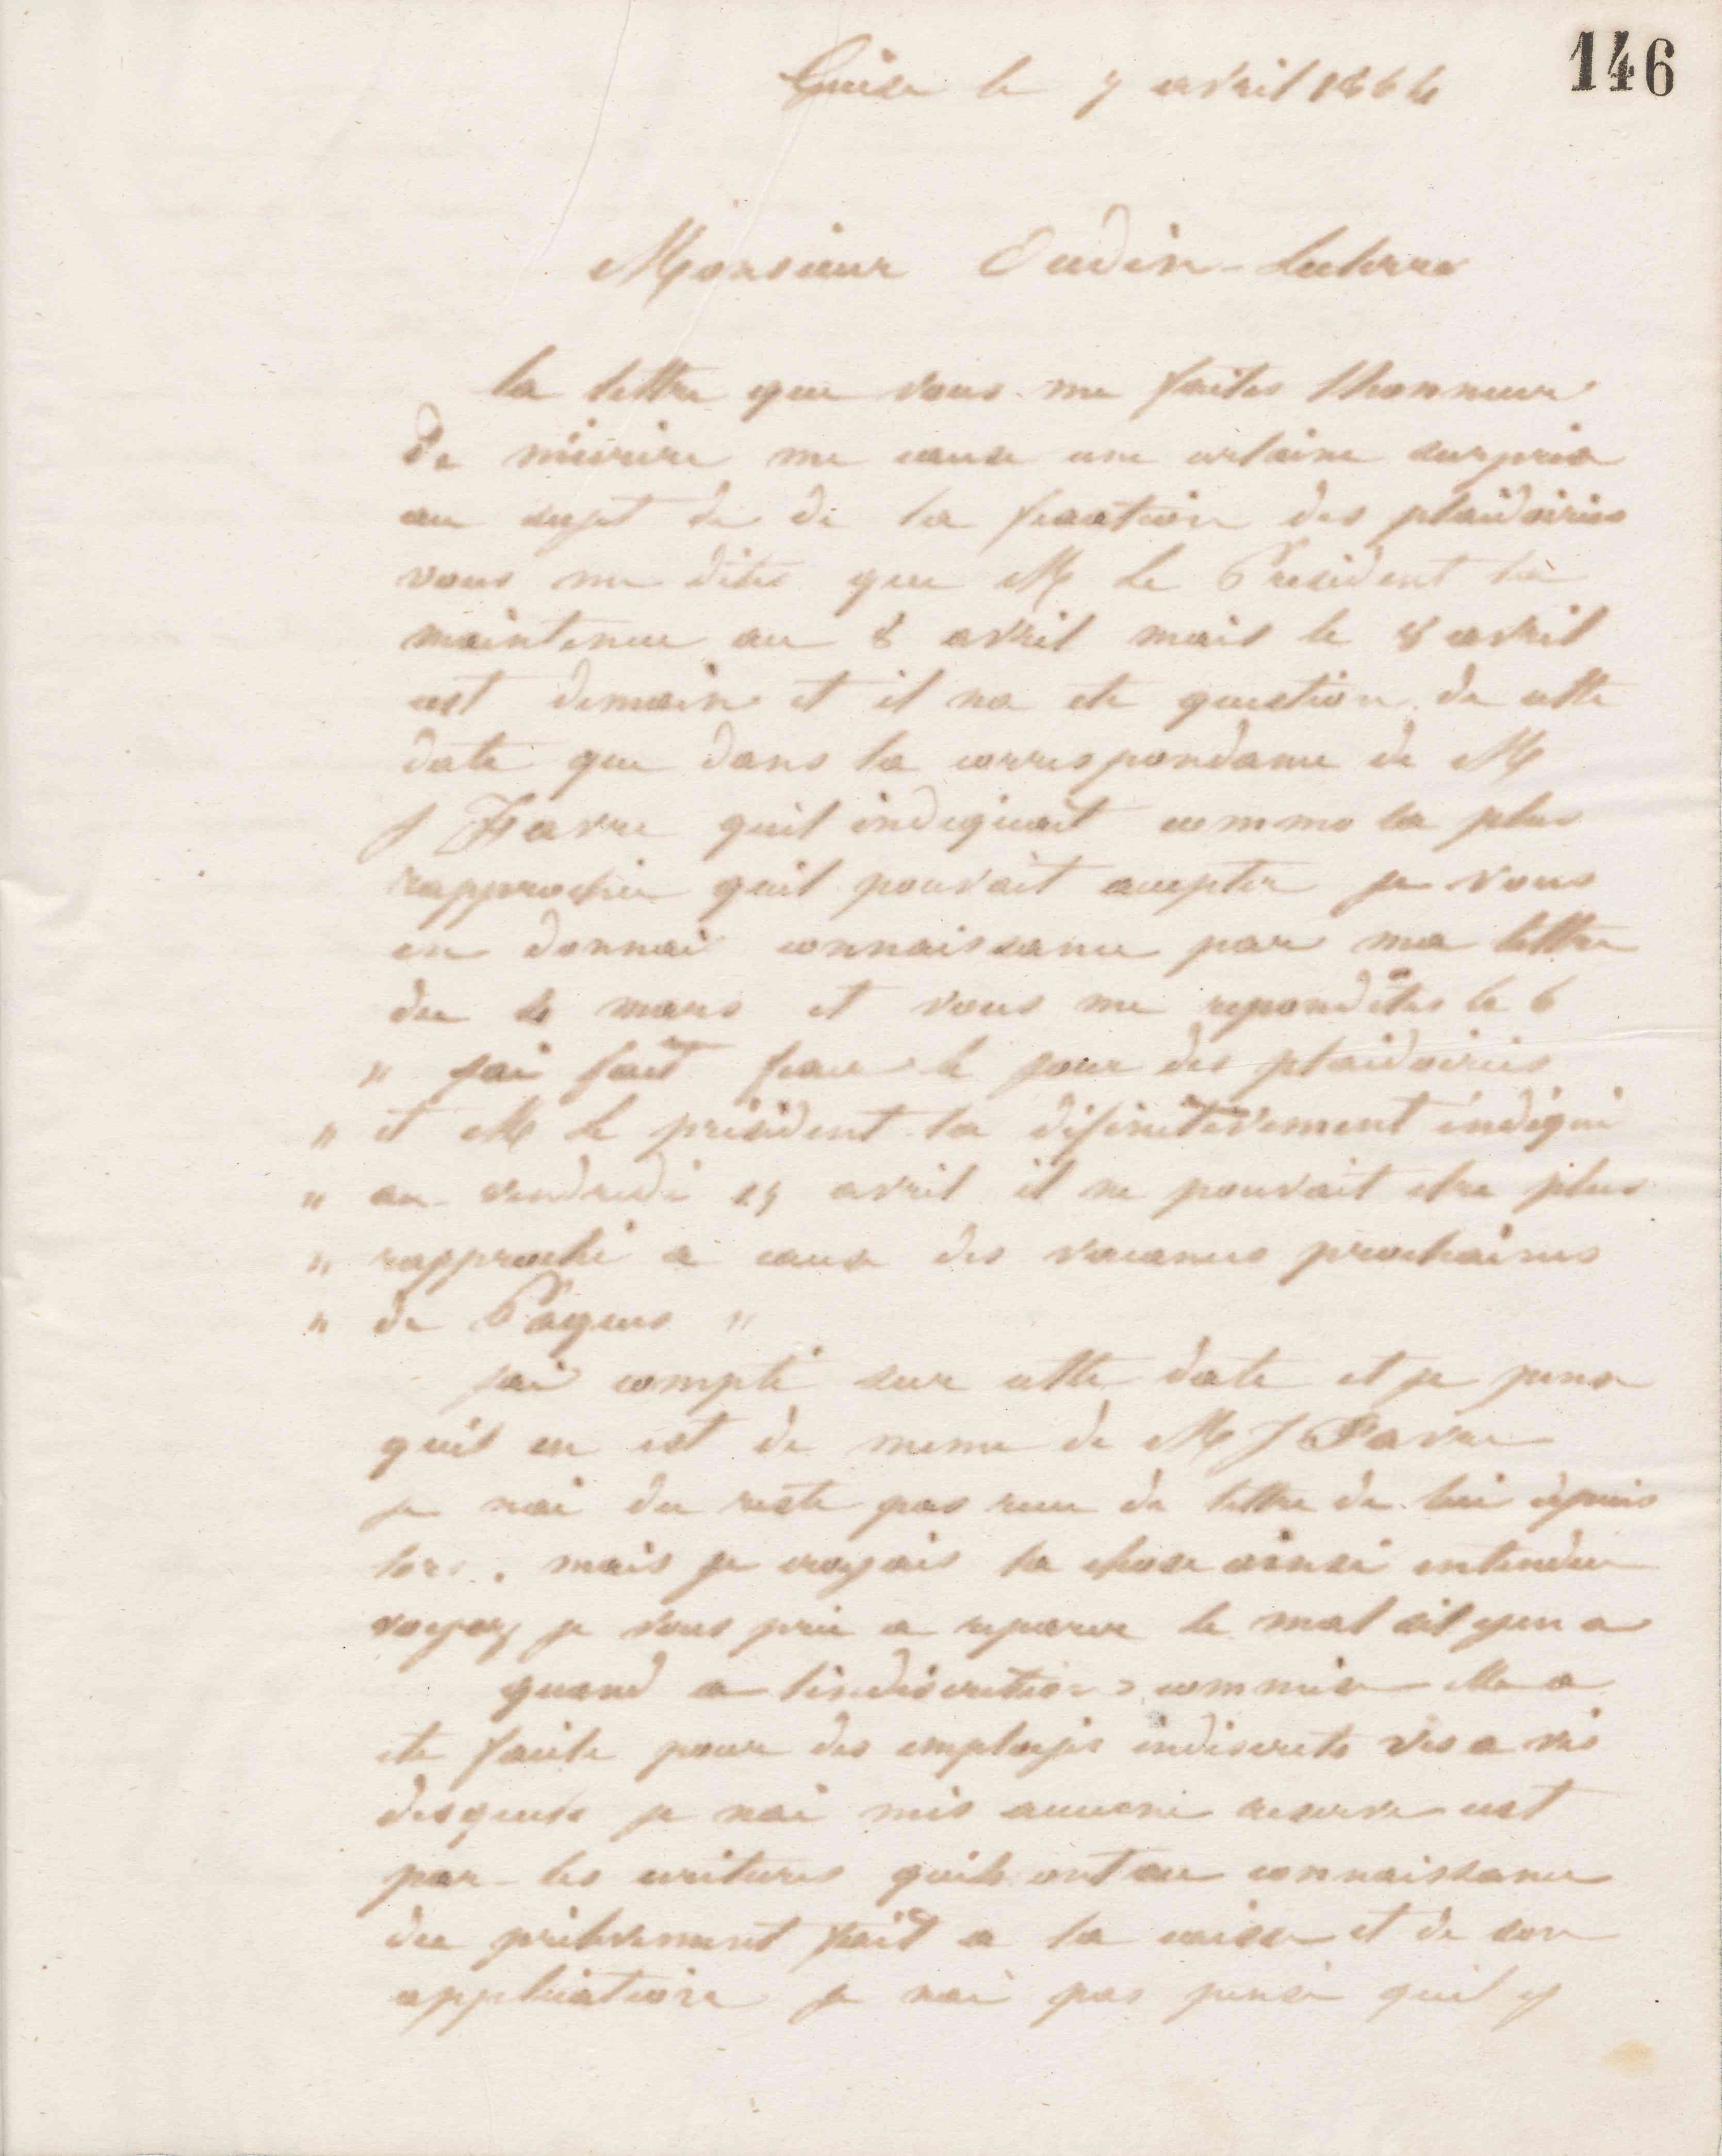 146
Guise le 7 avril 1864
Monsieur Oudin-Leclerre
la lettre que vous me faites lhonneur
de mécrire me cause une certaine surprise
au sujet de de la fixation des plaidoiries
vous me dites que M le President la
maintenue au 8 avril mais le 8 avril
est demain et il na ete question de cette
date que dans la correspondance de M
J Favre quil indiquait comme la plus
rapprochée quil pouvait accepter je vous
en donnai connaissance par ma lettre
du 4 mars et vous me repondîtes le 6
" jai fait fixer le jour des plaidoiries
" et M le président la difinitivement indiqué
" au vendredi 15 avril il ne pouvait etre plus
" rapproché a cause des vacances prochaines
" de Paques "
jai compté sur cette date et je pense
quil en est de meme de M J Favre
je nai du reste pas recu de lettre de lui depuis
lors. mais je croyais la chose ainsi entendue
voyez je vous prie a reparer le mal sil yen a
quand a lindiscretion commise elle a
ete faite pour des employés indiscrets vis a vis
desquels je nai mis aucune reserve cest
par les ecritures quils ont eu connaissance
du prélevement fait a la caisse et de son
application je nai pas pensé quil y